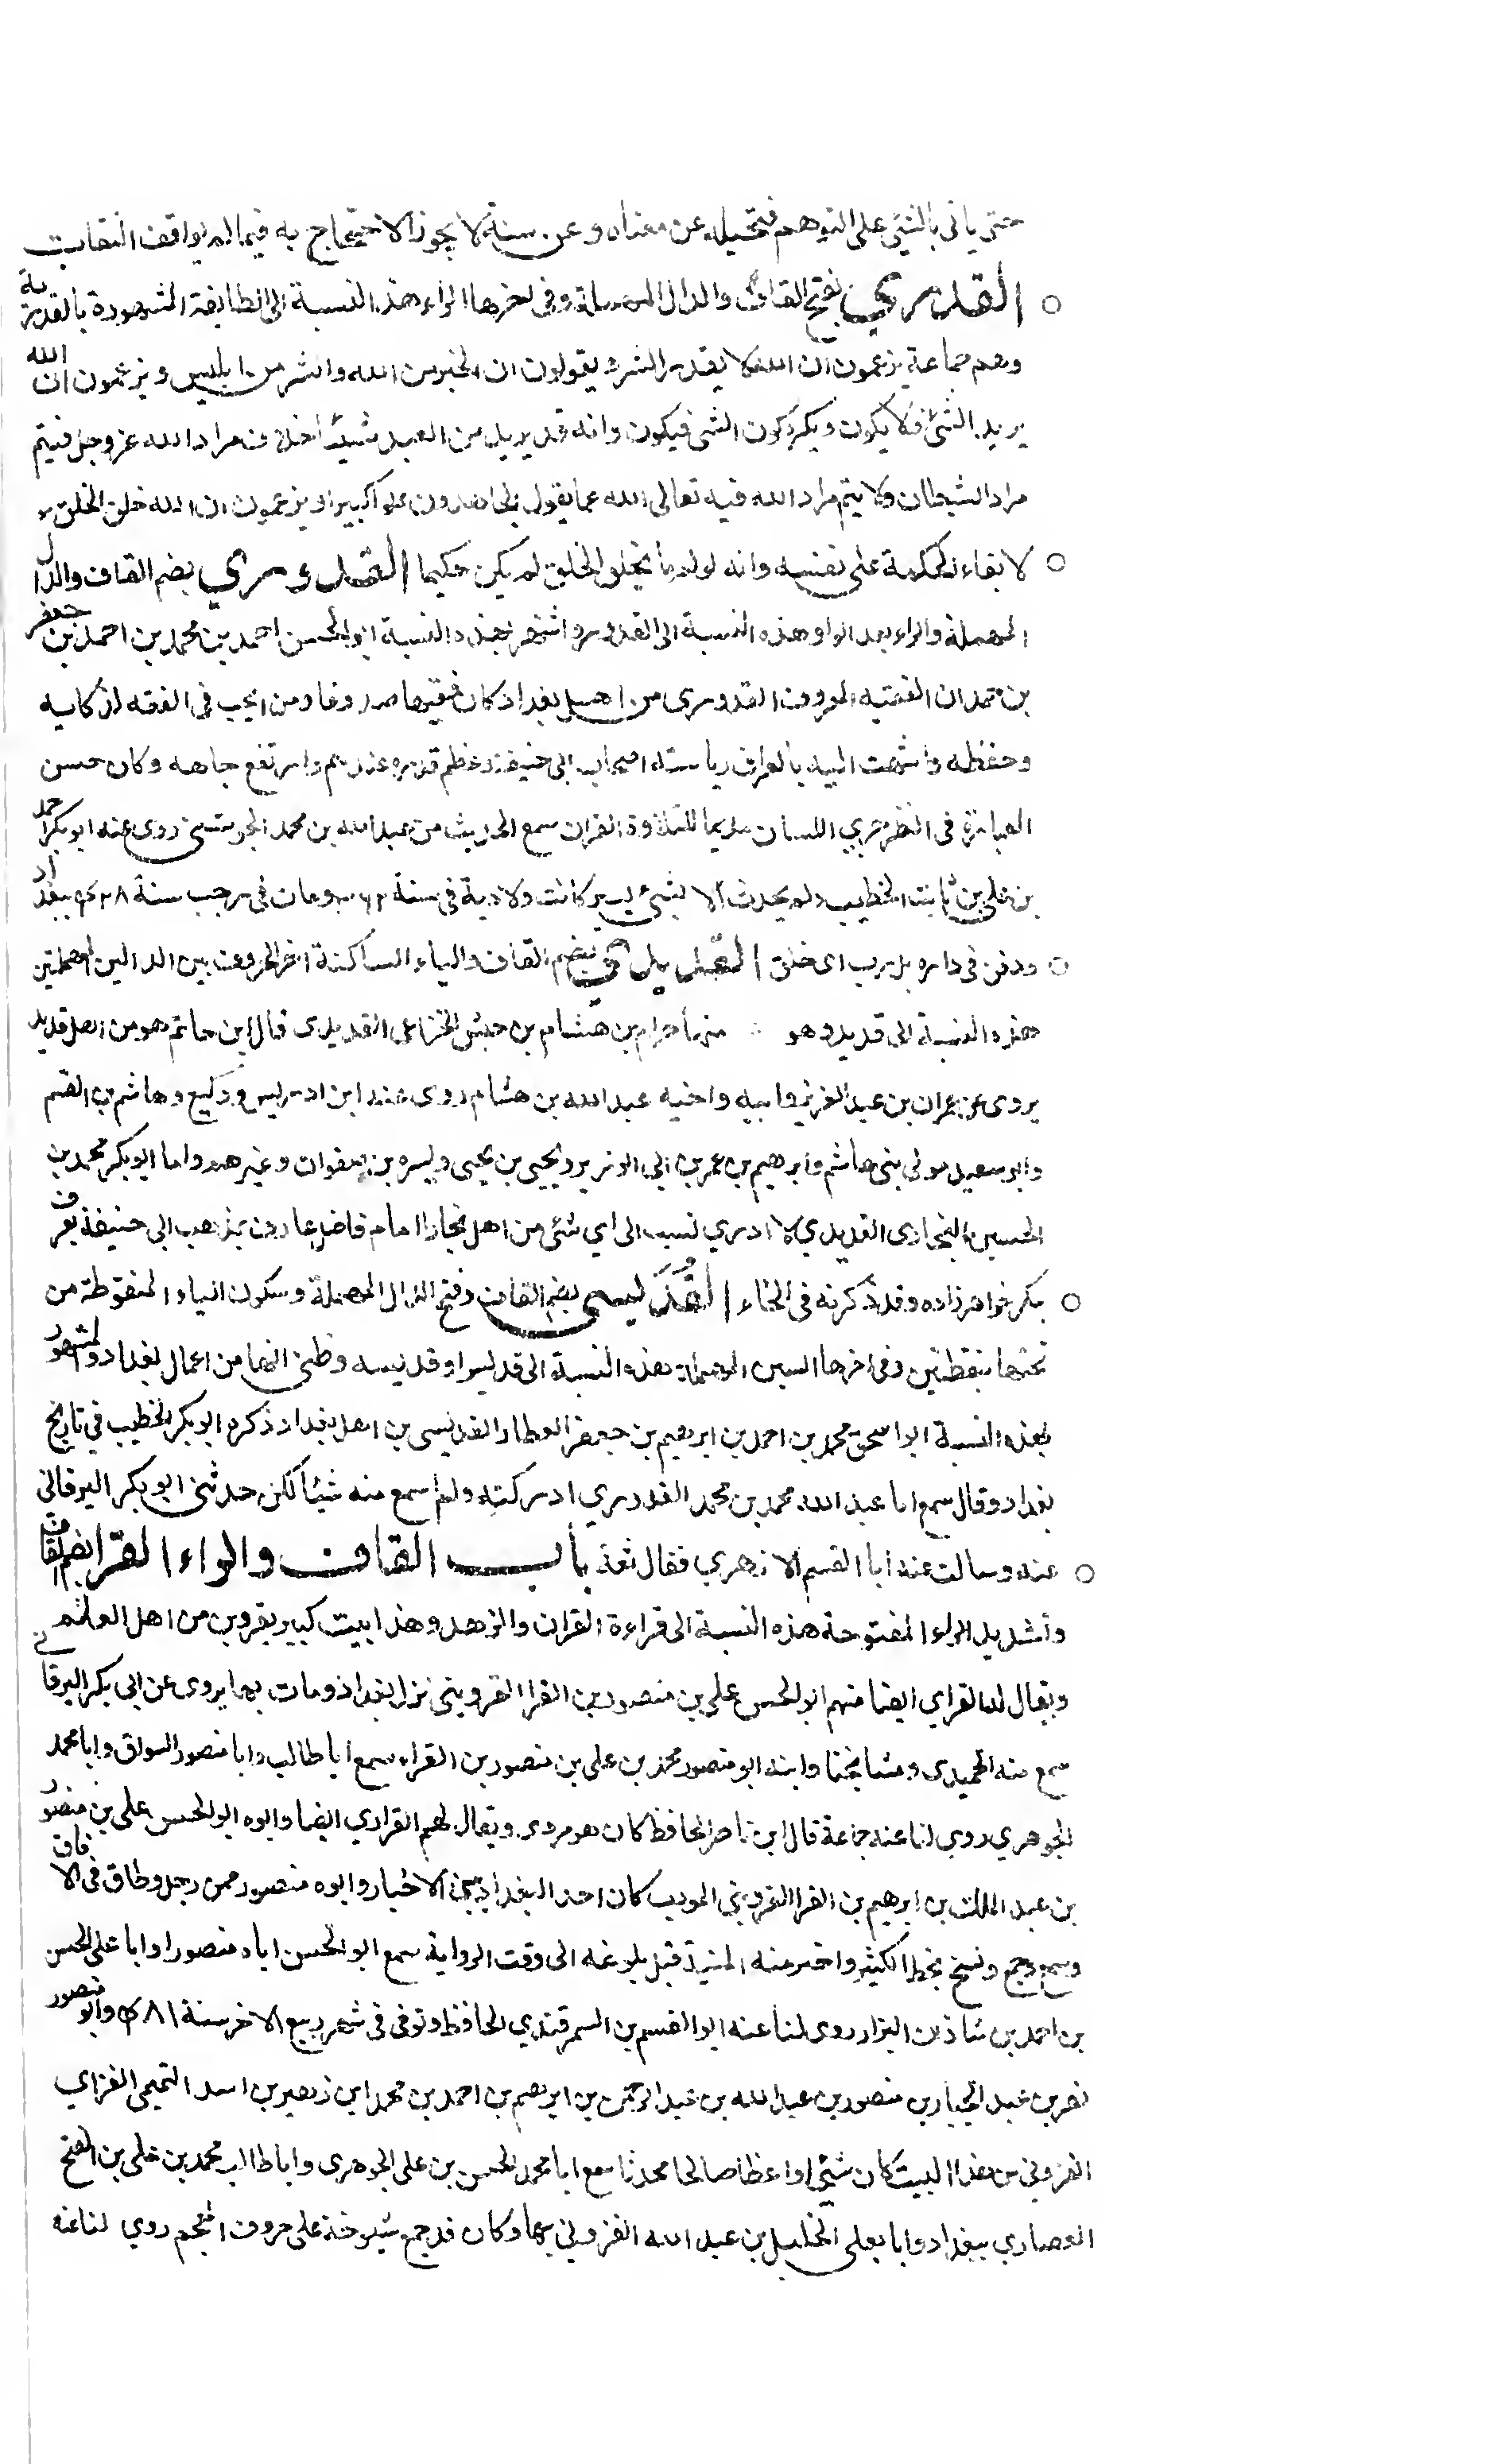 حتى ياتى بالشئ على التوهم فتحيله عن معناه وعن سنة لا يجوز الاحتجاج به فيما لم يوافق الثقات
القدري بفتح القاف والدال المهملة وفى اخرها الراء هذه النسبة الى الطايفة المشهورة بالقدرية
وهم جماعة يزعمون ان الله لا يقدر الشر ويقولون ان الخير من الله والشر من ابليس ويزعمون ان الله
يريد الشئ فلا يكون ويكره كون الشئ فيكون وانه قد يريد من العبد شيئا مراد الله عز وجل فيتم
مراد الشيطان ولا يتم مراد الله فيه تعالى الله عما يقول علوا كبيرا ويزعمون ان الله خلق الخلق
لا بقاء الحكمة على نفسه وانه لو لم يخلق الخلق لم يكن حكيما القدوري بضم القاف والدال
المهملة والراء بعد الواو هذه النسبة الى القدور واشتهر بهذه النسبة ابو الحسن احمد بن محمد بن احمد بن جعفر
بن حمدان الفقيه المعروف القدوري من اهل بغداد كان فقيها صدوقا ومن انجب فى الفقه لذكايه
وحفظه وانتهت اليه بالعراق رياسة اصحاب ابى حنيفة وعظم قدره عندهم وارتفع جاهه وكان حسن
العبارة فى النظر جري اللسان مديما لتلاوة القران سمع الحديث من عبد الله بن محمد الجوشنى روى عنه ابو بكر احمد
بن على بن ثابت الخطيب ولم يحدث الا بشئ يسير كانت ولادته فى سنة ٣٦٢ ومات فى رجب سنة ٤٢٨ ببغداد
ودفن فى داره بدرب ابى خلف القديدي بضم القاف والياء الساكنة اخر الحروف بين الدالين المهملتين
هذه النسبة الى قديد وهو منها حزام بن هشام بن حبيش الخزاعى القديدى قال ابن حاتم هو من اهل قديد
يروى عن عمران بن عبد العزيز وابيه واخيه عبد الله بن هشام روى عنه ابن ادريس ووكيع وهاشم بن القسم
وابو سعيد مولى بنى هاشم وابرهيم بن عمر بن ابى الوزير ويحيى بن يحيى ويسره بن صفوان وغيرهم واما ابو بكر محمد بن
الحسين البخارى القديدي لا ادري نسب الى اي شئ من اهل بخارا امام فاضل عارف بمذهب ابى حنيفة يعرف
بكر خواهر زاده وقد ذكرته فى الخاء القديسى بضم القاف وفتح الدال المهملة وسكون الياء المنقوطة من
تحتها بنقطتين وفى اخرها السين المهملة هذه النسبة الى قديس او قديسه وظنى انها من اعمال بغداد والمشهور
بهذه النسبة ابو اسحق محمد بن احمد بن ابرهيم بن جعفر العطار القديسى من اهل بغداد ذكره ابو بكر الخطيب فى تاريخ
بغداد وقال سمع ابا عبد الله محمد بن محمد الدوري ادركته ولم اسمع منه شيئا لكن حدثنى ابو بكر البرقانى
عنه وسالت عنه ابا القسم الازهري فقال ثقة باب القاف والراء القرا بضم القاف
وتشديد الراء المفتوحة هذه النسبة الى قراءة القران والزهد وهذا بيت كبير بقزوين من اهل العلم
ويقال له القراي ايضا منهم ابو الحسن على بن منصور بن القرا القزوينى نزل بغداد ومات بها يروى عن ابى بكر البرقانى
سمع منه الحميدى ومشايخنا وابنه ابو منصور محمد بن على بن منصور بن القراء سمع ابا طالب وابا منصور السواق وابا محمد
الجوهري روى لنا عنه جماعة قال ابن ناصر الحافظ كان هو مروى ويقال لهم القراري ايضا وابوه ابو الحسن على بن منصور
بن عبد الملك بن ابرهيم بن القرا القزوينى المودب كان احد البغداديين الاخيار وابوه منصور ممن رحل وطاف فى الافاق
وسمع وجمع ونسخ بخطه الكثير واخترمته المنية قبل بلوغه الى وقت الرواية سمع ابو الحسن اباه منصورا وابا على الحسن
بن احمد بن شاذان البزار روى لنا عنه ابو القسم بن السمرقندي الحافظ وتوفى فى شهر ربيع الاخر سنة ٤٨١ وابو منصور
نصر بن عبد الجبار بن منصور بن عبد الله بن عبد الرحمن بن ابرهيم بن احمد بن محمد ابن زهير بن اسد التميمى القراي
القزوينى من هذا البيت كان شيخا واعظا صالحا محدثا سمع ابا محمد الحسن بن على الجوهرى وابا طالب محمد بن على بن الفتح
العصاري ببغداد وابا يعلى الخليل بن عبد الله القزوينى بها وكان قد جمع شيوخه على حروف المعجم روي لنا عنه